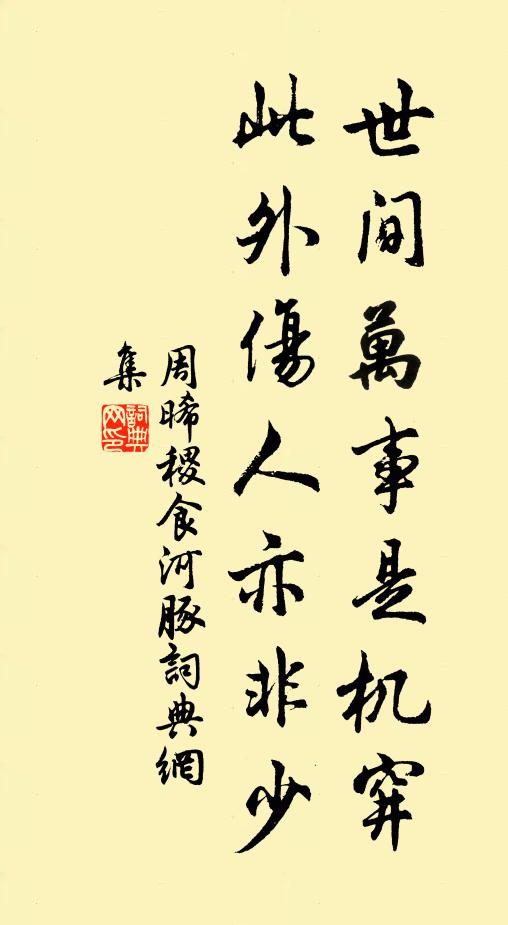 世间萬事是机穽
此外傷人亦非少
周晞稷食河豚詞典網
集
詞典网印